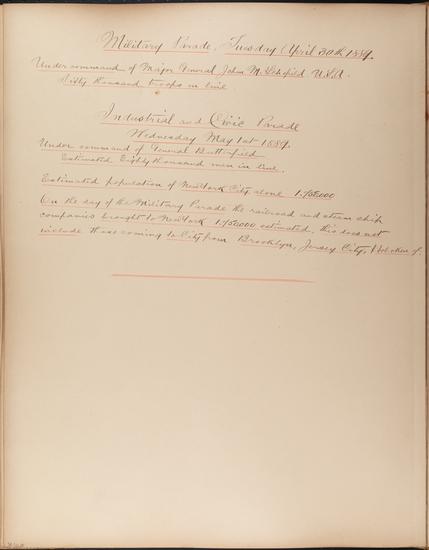 Military Parade, Tuesday April 30th 1889.
Under command of Major General John M. Schofield U.S.A.
Sixty thousand troops in line
Industrial and Civic Parade
Wednesday May 1st 1889.
Under command of General Butterfield
Estimated Eighty thousand men in line.
Estimated population of New York City alone 1.750000
On the day of the Military Parade the railroad and steam ship
companies brought to New York 1.750000 estimated, this does not
include those coming to City from Brooklyn, Jersey City, Hoboken